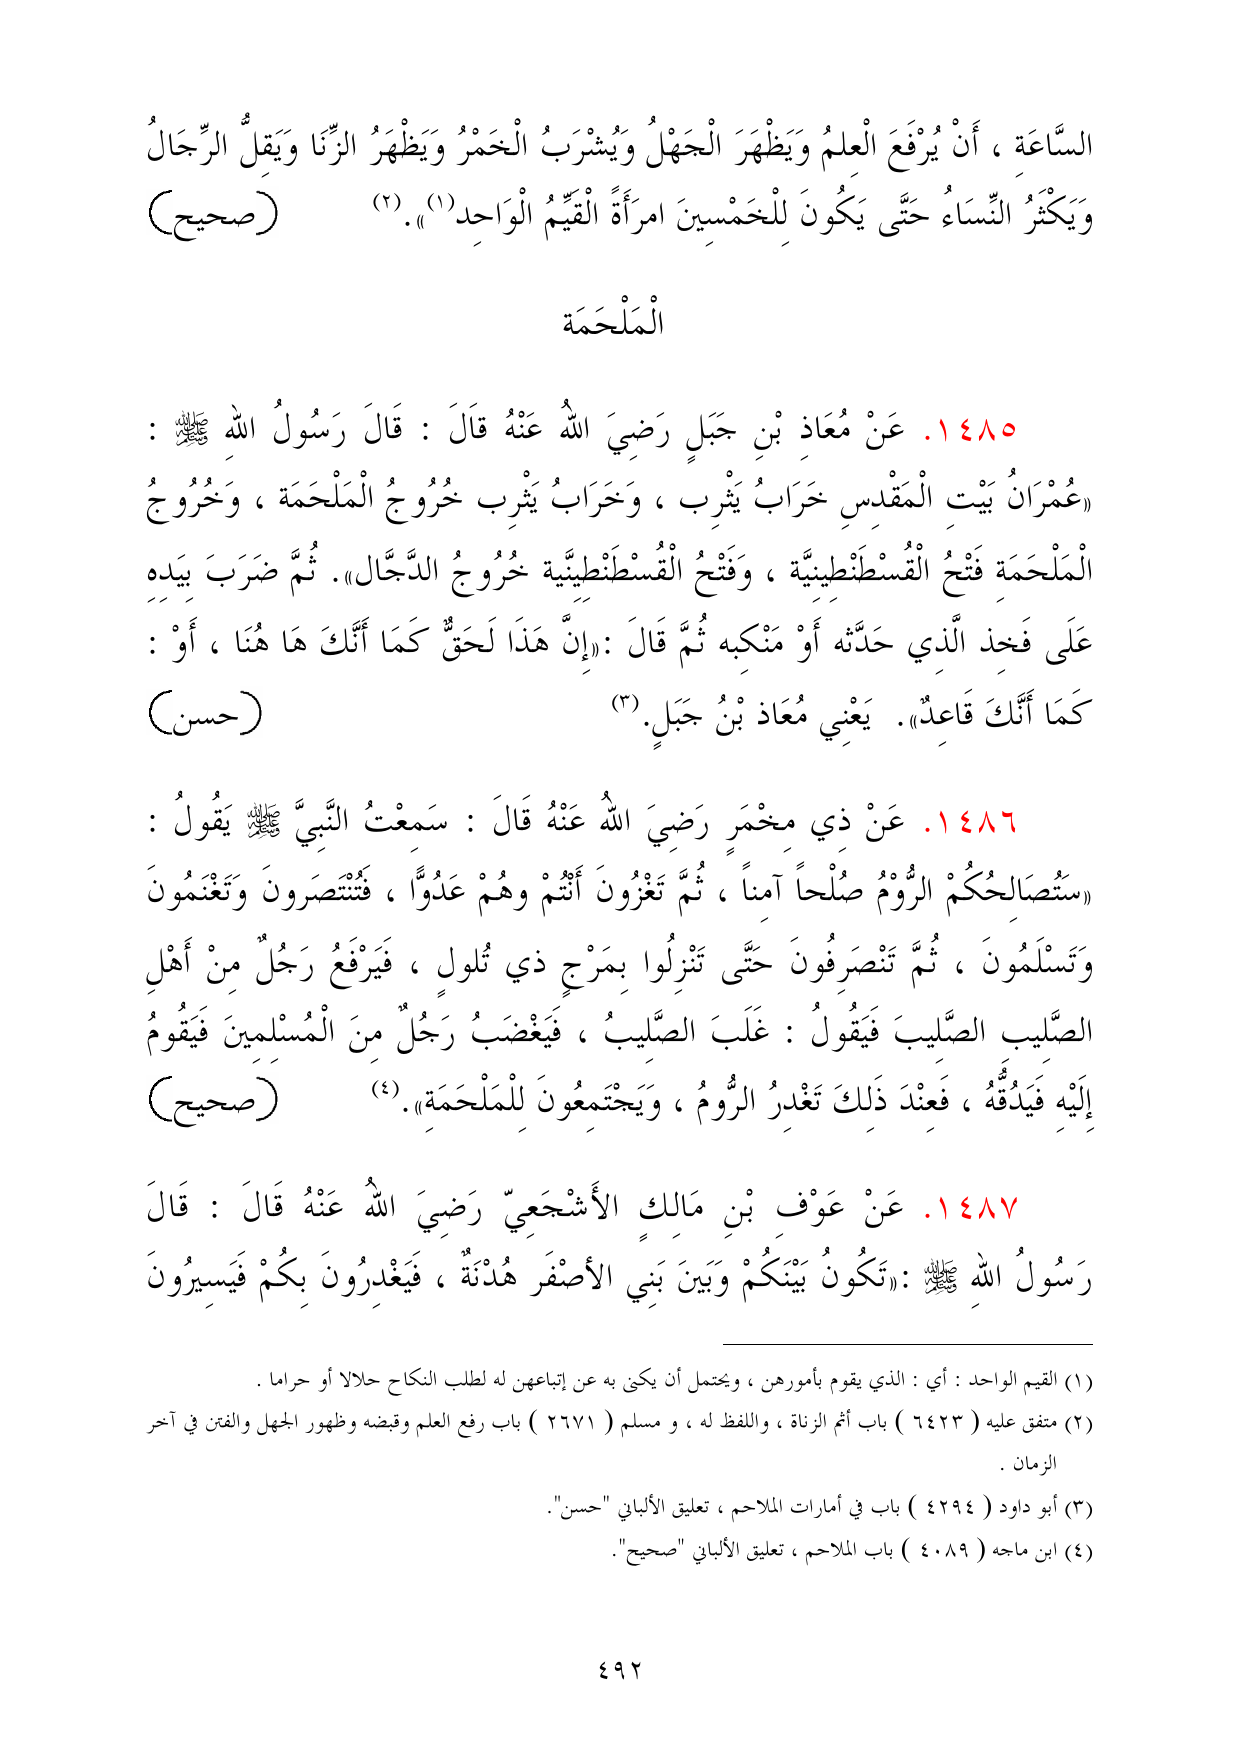 السَّاعَةِ ، أَنْ يُرْفَعَ الْعِلمُ وَيَظْهَرَ الْجَهْلُ وَيُشْرَبُ الْخَمْرُ وَيَظْهَرُ الزِّنَا وَيَقِلُّ الرِّجَالُ
وَيَكْثَرُ النِّسَاءُ حَتَّى يَكُونَ لِلْخَمْسِينَ امرَأَةً الْقَيِّمُ الْوَاحِد(١)».(٢) (صحيح)
الْمَلْحَمَة
١٤٨٥. عَنْ مُعَاذِ بْنِ جَبَلٍ رَضِيَ اللهُ عَنْهُ قاَلَ : قَالَ رَسُولُ اللهِ ﷺ :
«عُمْرَانُ بَيْتِ الْمَقْدِسِ خَرَابُ يَثْرِب ، وَخَرَابُ يَثْرِب خُرُوجُ الْمَلْحَمَة ، وَخُرُوجُ
الْمَلْحَمَةِ فَتْحُ الْقُسْطَنْطِينِيَّة ، وَفَتْحُ الْقُسْطَنْطِينِيَّة خُرُوجُ الدَّجَّال». ثُمَّ ضَرَبَ بِيَدِهِ
عَلَى فَخِذ الَّذِي حَدَّثه أَوْ مَنْكِبه ثُمَّ قَالَ :«إِنَّ هَذَا لَحَقٌّ كَمَا أَنَّكَ هَا هُنَا ، أَوْ :
كَمَا أَنَّكَ قَاعِدٌ». يَعْنِي مُعَاذ بْنُ جَبَلٍ.(٣) (حسن)
١٤٨٦. عَنْ ذِي مِخْمَرٍ رَضِيَ اللهُ عَنْهُ قَالَ : سَمِعْتُ النَّبِيَّ ﷺ يَقُولُ :
«سَتُصَالِحُكُمْ الرُّوْمُ صُلْحاً آمِناً ، ثُمَّ تَغْزُونَ أَنْتُمْ وهُمْ عَدُوًّا ، فَتُنْتَصَرونَ وَتَغْنَمُونَ
وَتَسْلَمُونَ ، ثُمَّ تَنْصَرِفُونَ حَتَّى تَنْزِلُوا بِمَرْجٍ ذي تُلولٍ ، فَيَرْفَعُ رَجُلٌ مِنْ أَهْلِ
الصَّلِيبِ الصَّلِيبَ فَيَقُولُ : غَلَبَ الصَّلِيبُ ، فَيَغْضَبُ رَجُلٌ مِنَ الْمُسْلِمِينَ فَيَقُومُ
إِلَيْهِ فَيَدُقُّهُ ، فَعِنْدَ ذَلِكَ تَغْدِرُ الرُّومُ ، وَيَجْتَمِعُونَ لِلْمَلْحَمَةِ».(٤) (صحيح)
١٤٨٧. عَنْ عَوْفِ بْنِ مَالِكٍ الأَشْجَعِيّ رَضِيَ اللهُ عَنْهُ قَالَ : قَالَ
رَسُولُ اللهِ ﷺ :«تَكُونُ بَيْنَكُمْ وَبَينَ بَنِي الأصْفَر هُدْنَةٌ ، فَيَغْدِرُونَ بِكُمْ فَيَسِيرُونَ
(١) القيم الواحد : أي : الذي يقوم بأمورهن ، ويحتمل أن يكنى به عن إتباعهن له لطلب النكاح حلالا أو حراما .
(٢) متفق عليه ( ٦٤٢٣ ) باب أثم الزناة ، واللفظ له ، و مسلم ( ٢٦٧١ ) باب رفع العلم وقبضه وظهور الجهل والفتن في آخر
الزمان .
(٣) أبو داود ( ٤٢٩٤ ) باب في أمارات الملاحم ، تعليق الألباني "حسن".
(٤) ابن ماجه ( ٤٠٨٩ ) باب الملاحم ، تعليق الألباني "صحيح".
٤٩٢